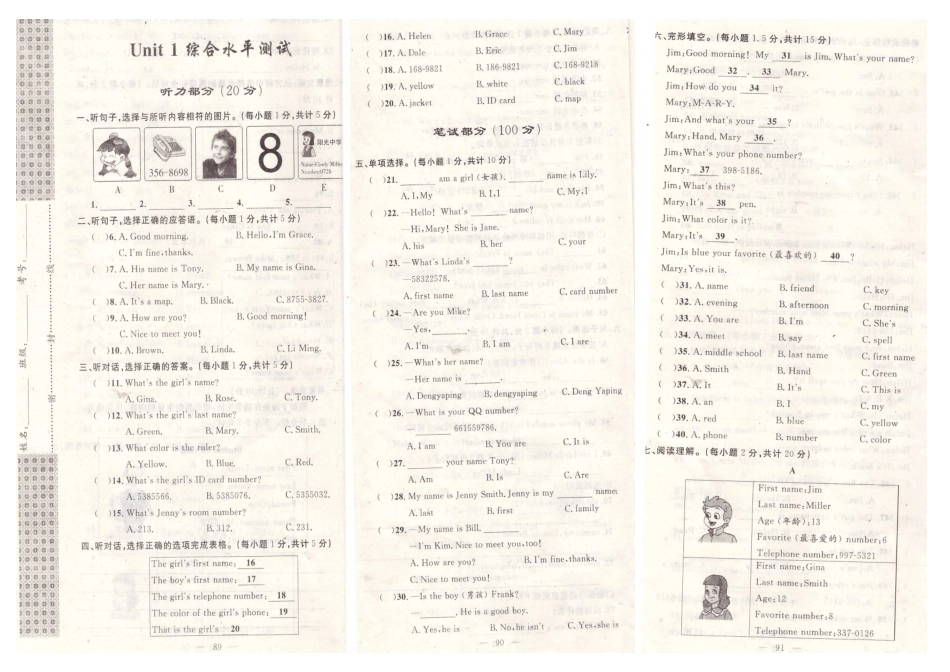 Unit 1 综合水平测试
听力部分(20 分)
一、听句子,选择与所听内容相符的图片。(每小题1分,共计5分)
356-8698
8
阳光中学
Name:Cindy Miller
Number:0726
A B C D E
1. 2. 3. 4. 5.
二、听句子,选择正确的应答语。(每小题1分,共计5分)
( )6. A. Good morning. B. Hello,I'm Grace.
C. I'm fine,thanks.
( )7. A. His name is Tony. B. My name is Gina.
C. Her name is Mary.
( )8. A. It's a map. B. Black. C. 8755-3827.
( )9. A. How are you? B. Good morning!
C. Nice to meet you!
( )10. A. Brown. B. Linda. C. Li Ming.
三、听对话,选择正确的答案。(每小题1分,共计5分)
( )11. What's the girl's name?
A. Gina. B. Rose. C. Tony.
( )12. What's the girl's last name?
A. Green. B. Mary. C. Smith.
( )13. What color is the ruler?
A. Yellow. B. Blue. C. Red.
( )14. What's the girl's ID card number?
A. 5385566. B. 5385076. C. 5355032.
( )15. What's Jenny's room number?
A. 213. B. 312. C. 231.
四、听对话,选择正确的选项完成表格。(每小题1分,共计5分)
The girl's first name: 16
The boy's first name: 17
The girl's telephone number: 18
The color of the girl's phone: 19
That is the girl's 20
— 89 —
考号:
班级:
姓名:
线
封
密
( )16. A. Helen B. Grace C. Mary
( )17. A. Dale B. Eric C. Jim
( )18. A. 168-9821 B. 186-9821 C. 168-9218
( )19. A. yellow B. white C. black
( )20. A. jacket B. ID card C. map
笔试部分(100 分)
五、单项选择。(每小题1分,共计10分)
( )21. ______ am a girl (女孩). ______ name is Lily.
A. I,My B. I,I C. My,I
( )22. —Hello! What's ______ name?
—Hi,Mary! She is Jane.
A. his B. her C. your
( )23. —What's Linda's ______?
—58322578.
A. first name B. last name C. card number
( )24. —Are you Mike?
—Yes,______.
A. I'm B. I am C. I are
( )25. —What's her name?
—Her name is ______.
A. Dengyaping B. dengyaping C. Deng Yaping
( )26. —What is your QQ number?
—______ 661559786.
A. I am B. You are C. It is
( )27. ______ your name Tony?
A. Am B. Is C. Are
( )28. My name is Jenny Smith. Jenny is my ______ name.
A. last B. first C. family
( )29. —My name is Bill. ______
—I'm Kim. Nice to meet you,too!
A. How are you? B. I'm fine,thanks.
C. Nice to meet you!
( )30. —Is the boy (男孩) Frank?
—______. He is a good boy.
A. Yes,he is B. No,he isn't C. Yes,she is
— 90 —
六、完形填空。(每小题 1.5 分,共计 15 分)
Jim:Good morning! My 31 is Jim. What's your name?
Mary:Good 32 . 33 Mary.
Jim:How do you 34 it?
Mary:M-A-R-Y.
Jim:And what's your 35 ?
Mary:Hand. Mary 36 .
Jim:What's your phone number?
Mary: 37 398-5186.
Jim:What's this?
Mary:It's 38 pen.
Jim:What color is it?
Mary:It's 39 .
Jim:Is blue your favorite (最喜欢的) 40 ?
Mary:Yes,it is.
( )31. A. name B. friend C. key
( )32. A. evening B. afternoon C. morning
( )33. A. You are B. I'm C. She's
( )34. A. meet B. say C. spell
( )35. A. middle school B. last name C. first name
( )36. A. Smith B. Hand C. Green
( )37. A. It B. It's C. This is
( )38. A. an B. I C. my
( )39. A. red B. blue C. yellow
( )40. A. phone B. number C. color
七、阅读理解。(每小题 2 分,共计 20 分)
A
First name:Jim
Last name:Miller
Age (年龄):13
Favorite (最喜爱的) number:6
Telephone number:997-5321
First name:Gina
Last name:Smith
Age:12
Favorite number:8
Telephone number:337-0126
— 91 —